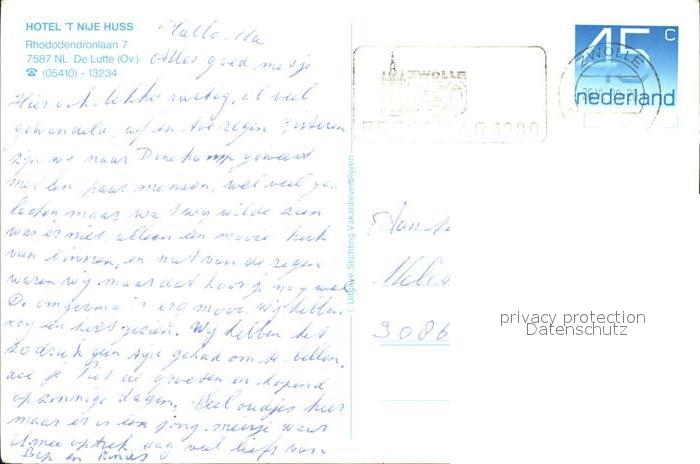 HOTEL 'T NIJE HUSS
Rhododendronlaan 7
7587 NL De Lutte (Ov.)
☎ (05410) - 13234
Hallo Ma
Alles goed met je
Hier ook lekker rustig, al veel
gewandeld, af en toe regen. Gisteren
zijn we naar Denekamp geweest
met een paar mensen, wel veel ge-
lachen maar wat wij wilde zien
was er niet, alleen een mooie kerk
van binnen, en nat van de regen
waren wij, maar dat hoor je nog wel
De omgeving is erg mooi. Wij hebben
nog een hert gezien. Wij hebben het
zo druk geen tijd gehad om te bellen.
doe je Piet de groeten en hopend
op zonnige dagen. Veel oudjes hier
maar er is een jong meisje waar
ik mee optrek dag veel liefs van
Bep en
© Uitgave: Stichting Vakantieverblijven
ZWOLLE
1980
ZWOLLE
45 c
nederland
3086
privacy protection
Datenschutz